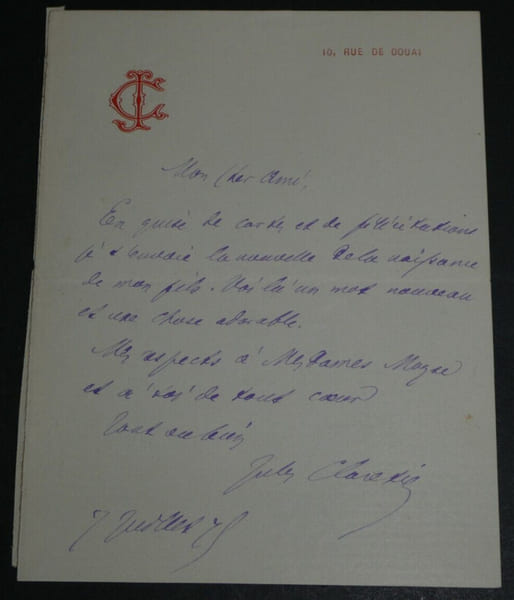 10, RUE DE DOUAI
JC
Mon Cher Ami,
En guise de cartes et de félicitations
je t'envoie la nouvelle de la naissance
de mon fils. Voilà un mot nouveau
et une chose adorable.
Mes respects à Mesdames
et à toi de tout cœur
Tout
Jules Claretie
7 Juillet 75